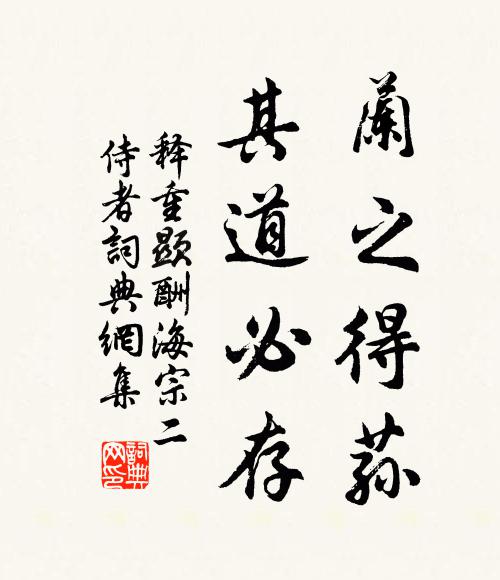 蘭之得蓀
其道必存
释重顕酬海宗二
侍者詞典網集
詞典网印